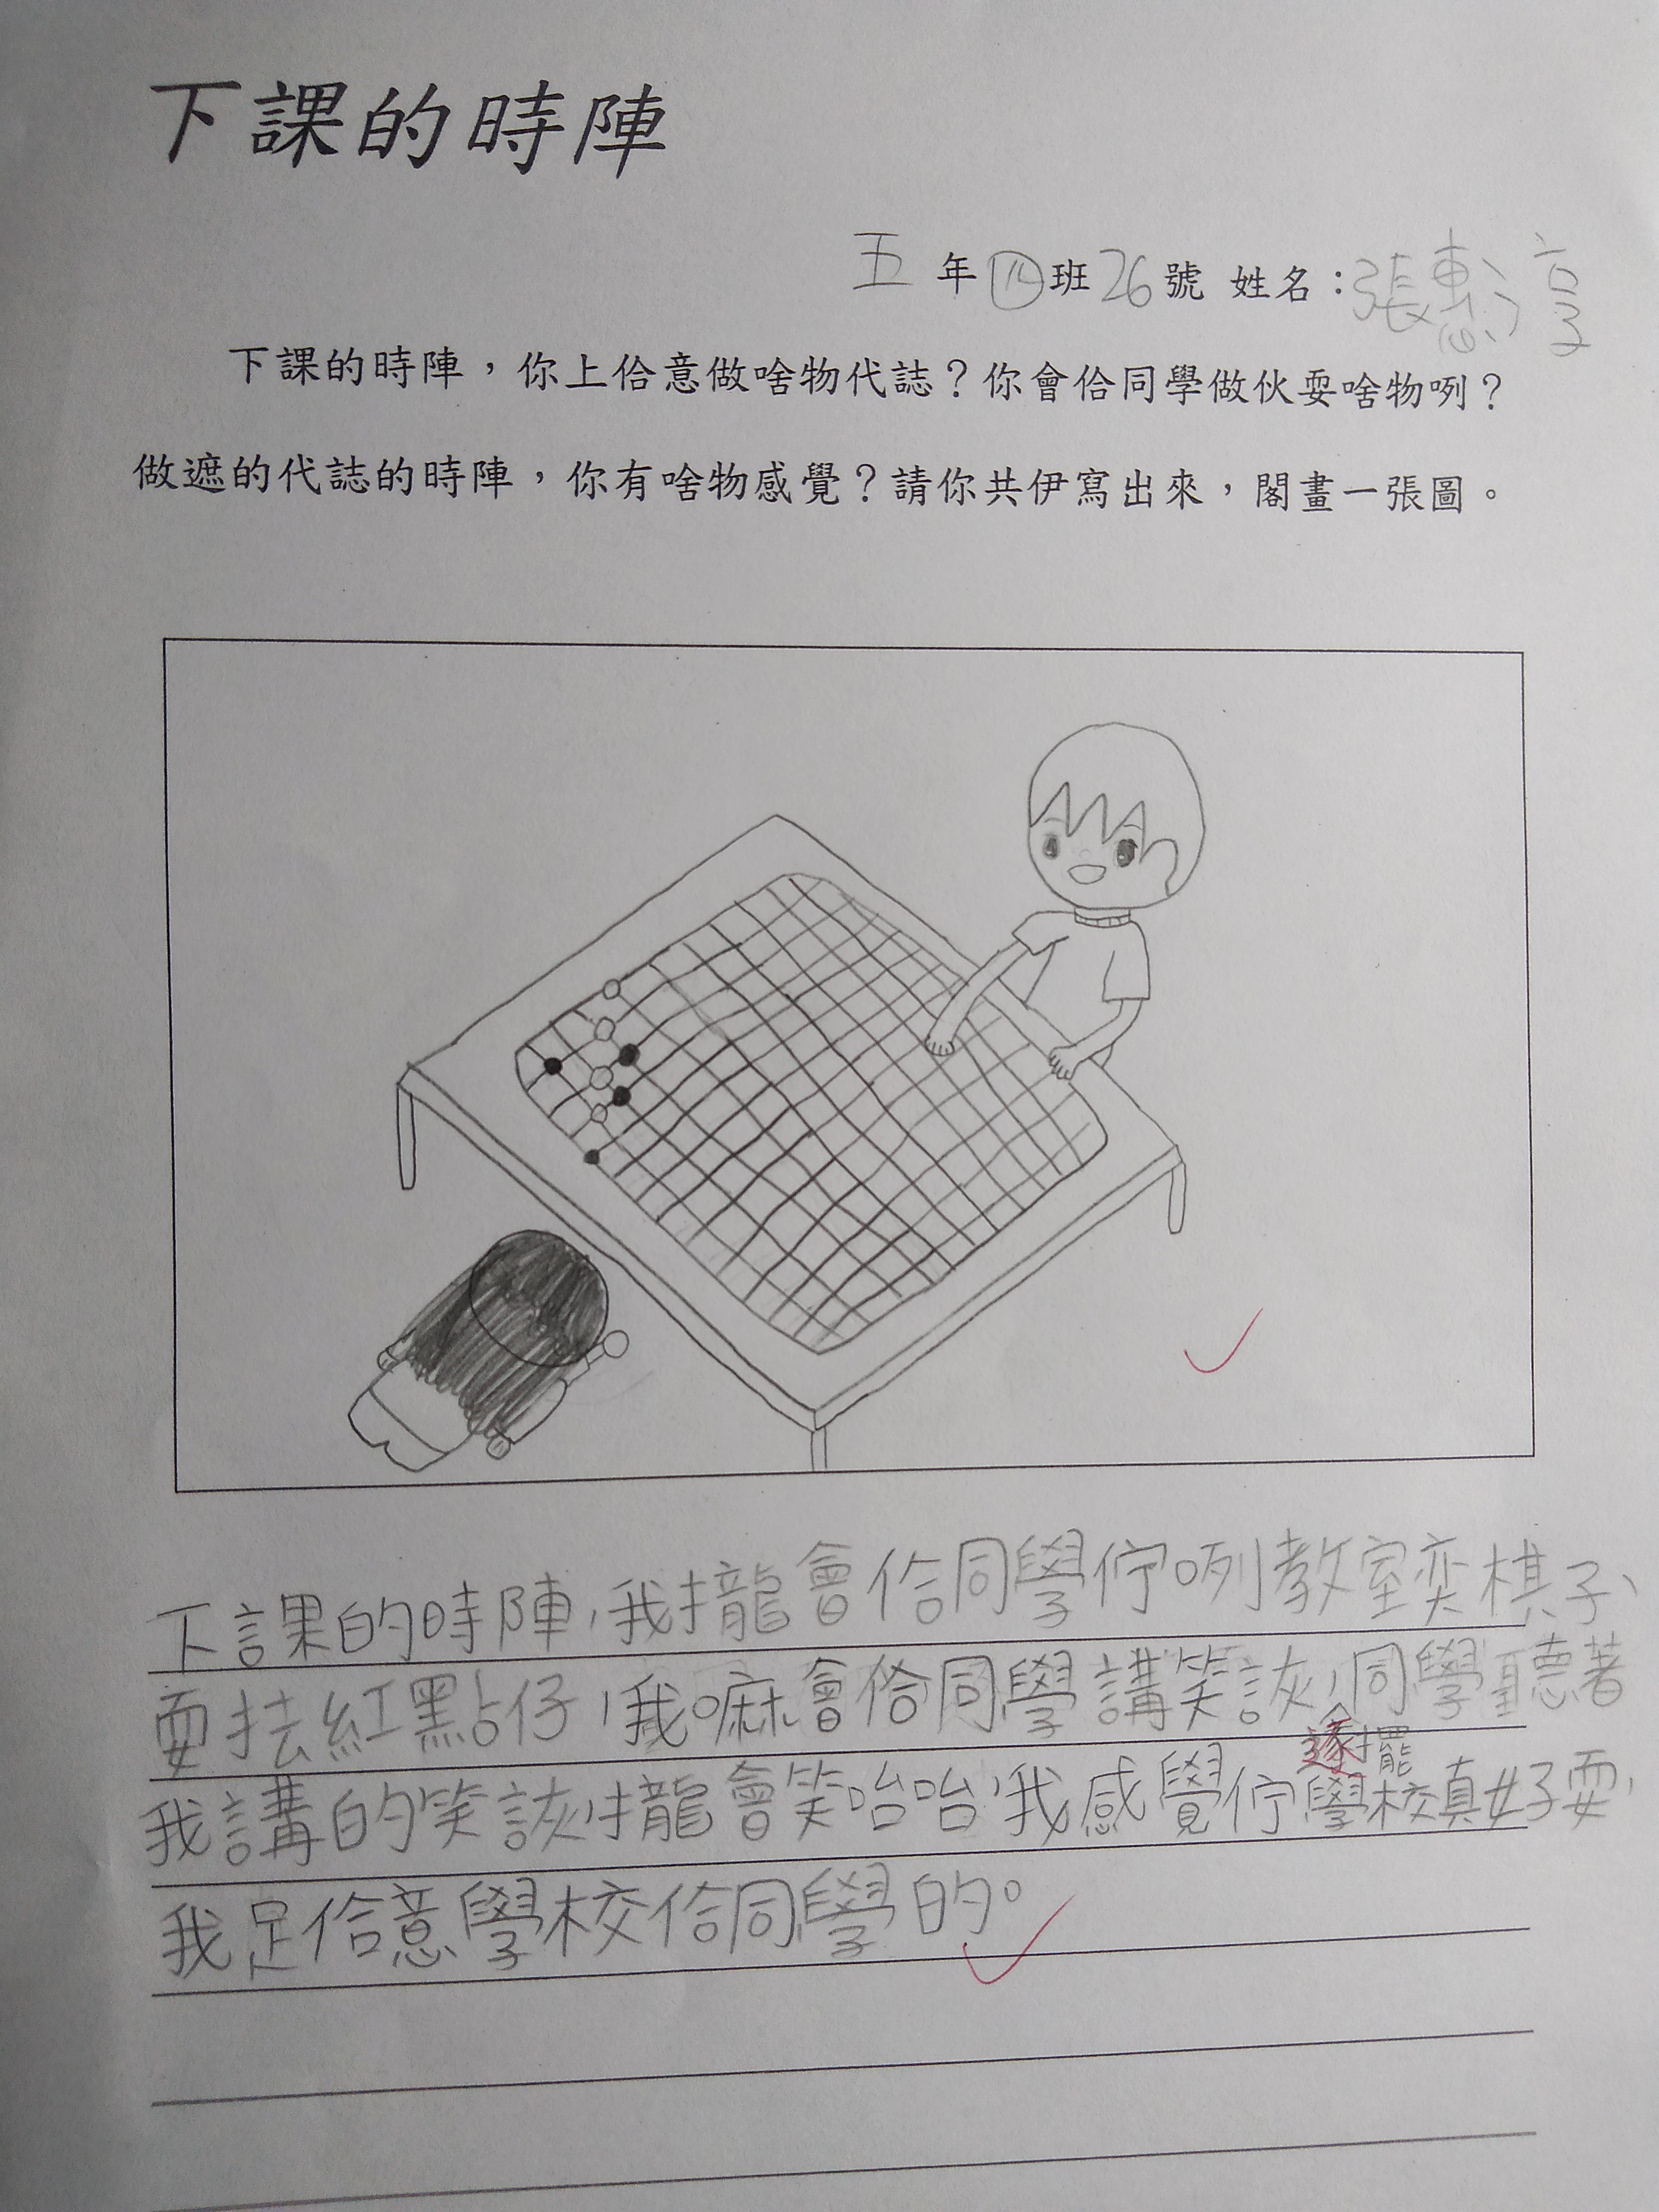 下課的時陣
五年四班26號 姓名：張惠淳
下課的時陣，你上佮意做啥物代誌？你會佮同學做伙耍啥物咧？
做遮的代誌的時陣，你有啥物感覺？請你共伊寫出來，閣畫一張圖。
下課的時陣，我攏會佮同學佇咧教室奕棋子、
耍抾紅點仔，我嘛會佮同學講笑詼，同學聽著
逐擺
我講的笑詼，攏會笑咍咍，我感覺佇學校真好耍，
我足佮意學校佮同學的。